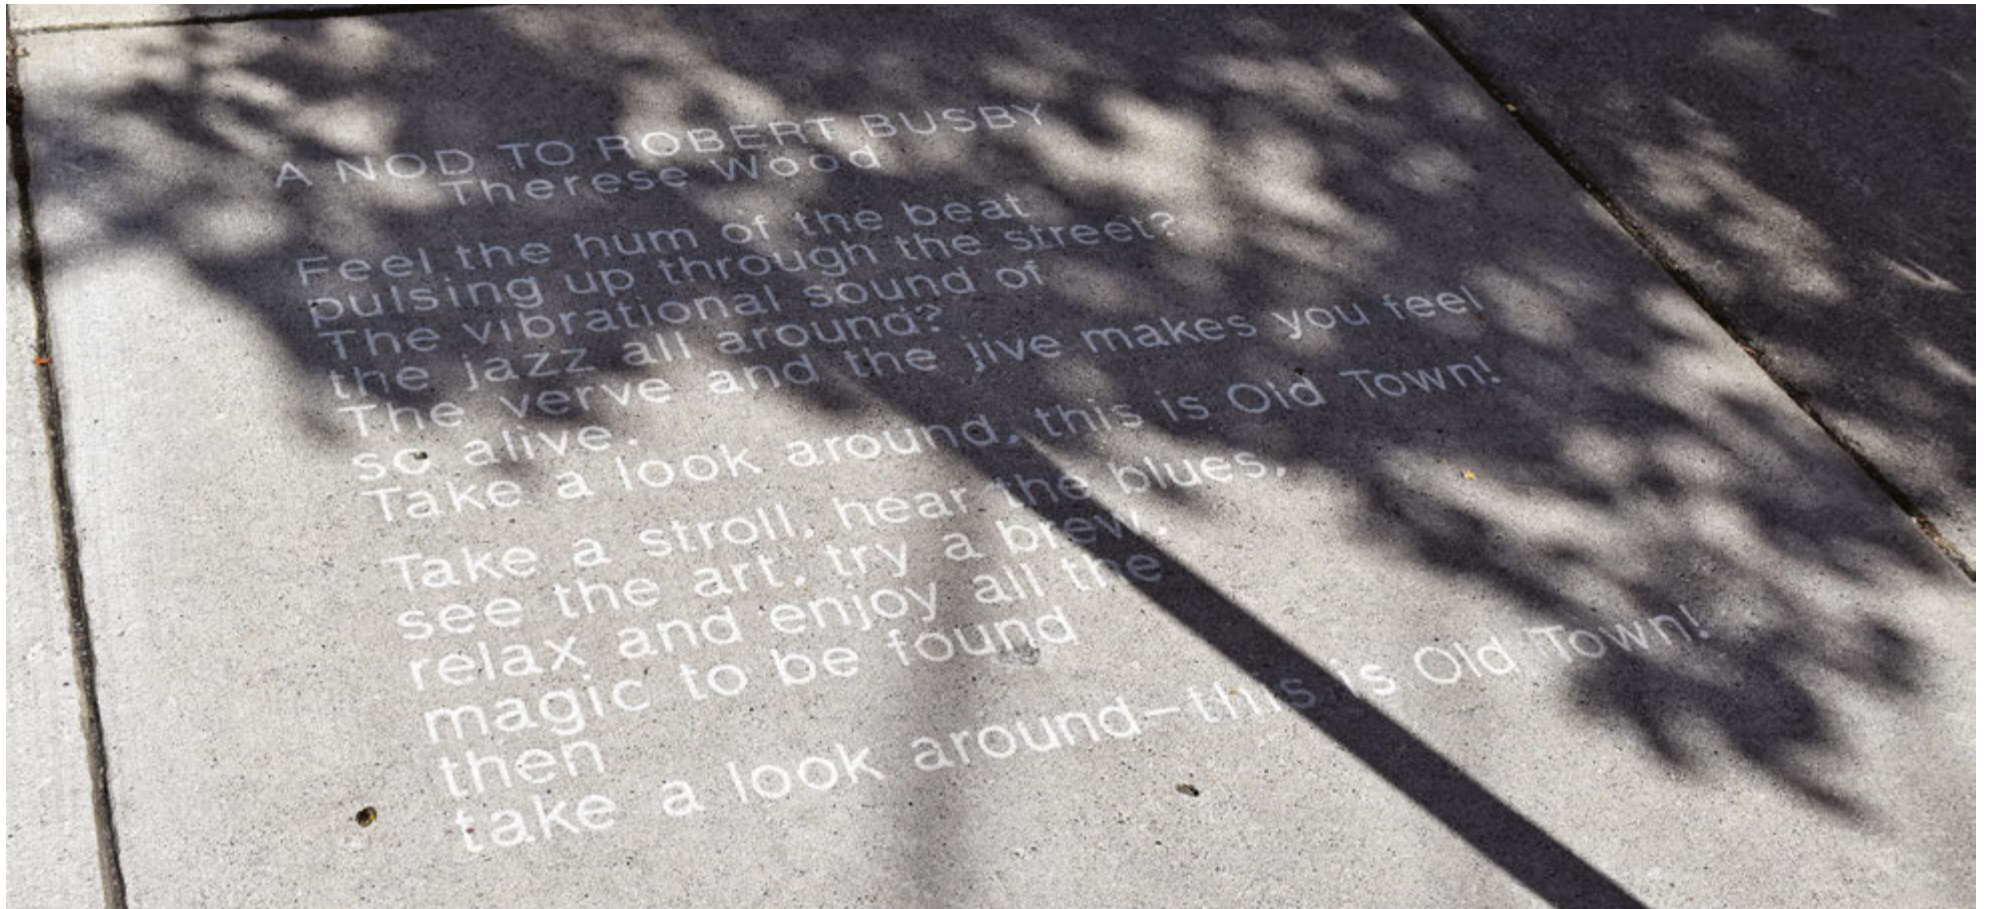 A NOD TO ROBERT BUSBY
Therese Wood
Feel the hum of the beat
pulsing up through the street?
The vibrational sound of
the jazz all around?
The verve and the jive makes you feel
so alive.
Take a look around, this is Old Town!
Take a stroll, hear the blues,
see the art, try a brew,
relax and enjoy all the
magic to be found
then
take a look around—this is Old Town!